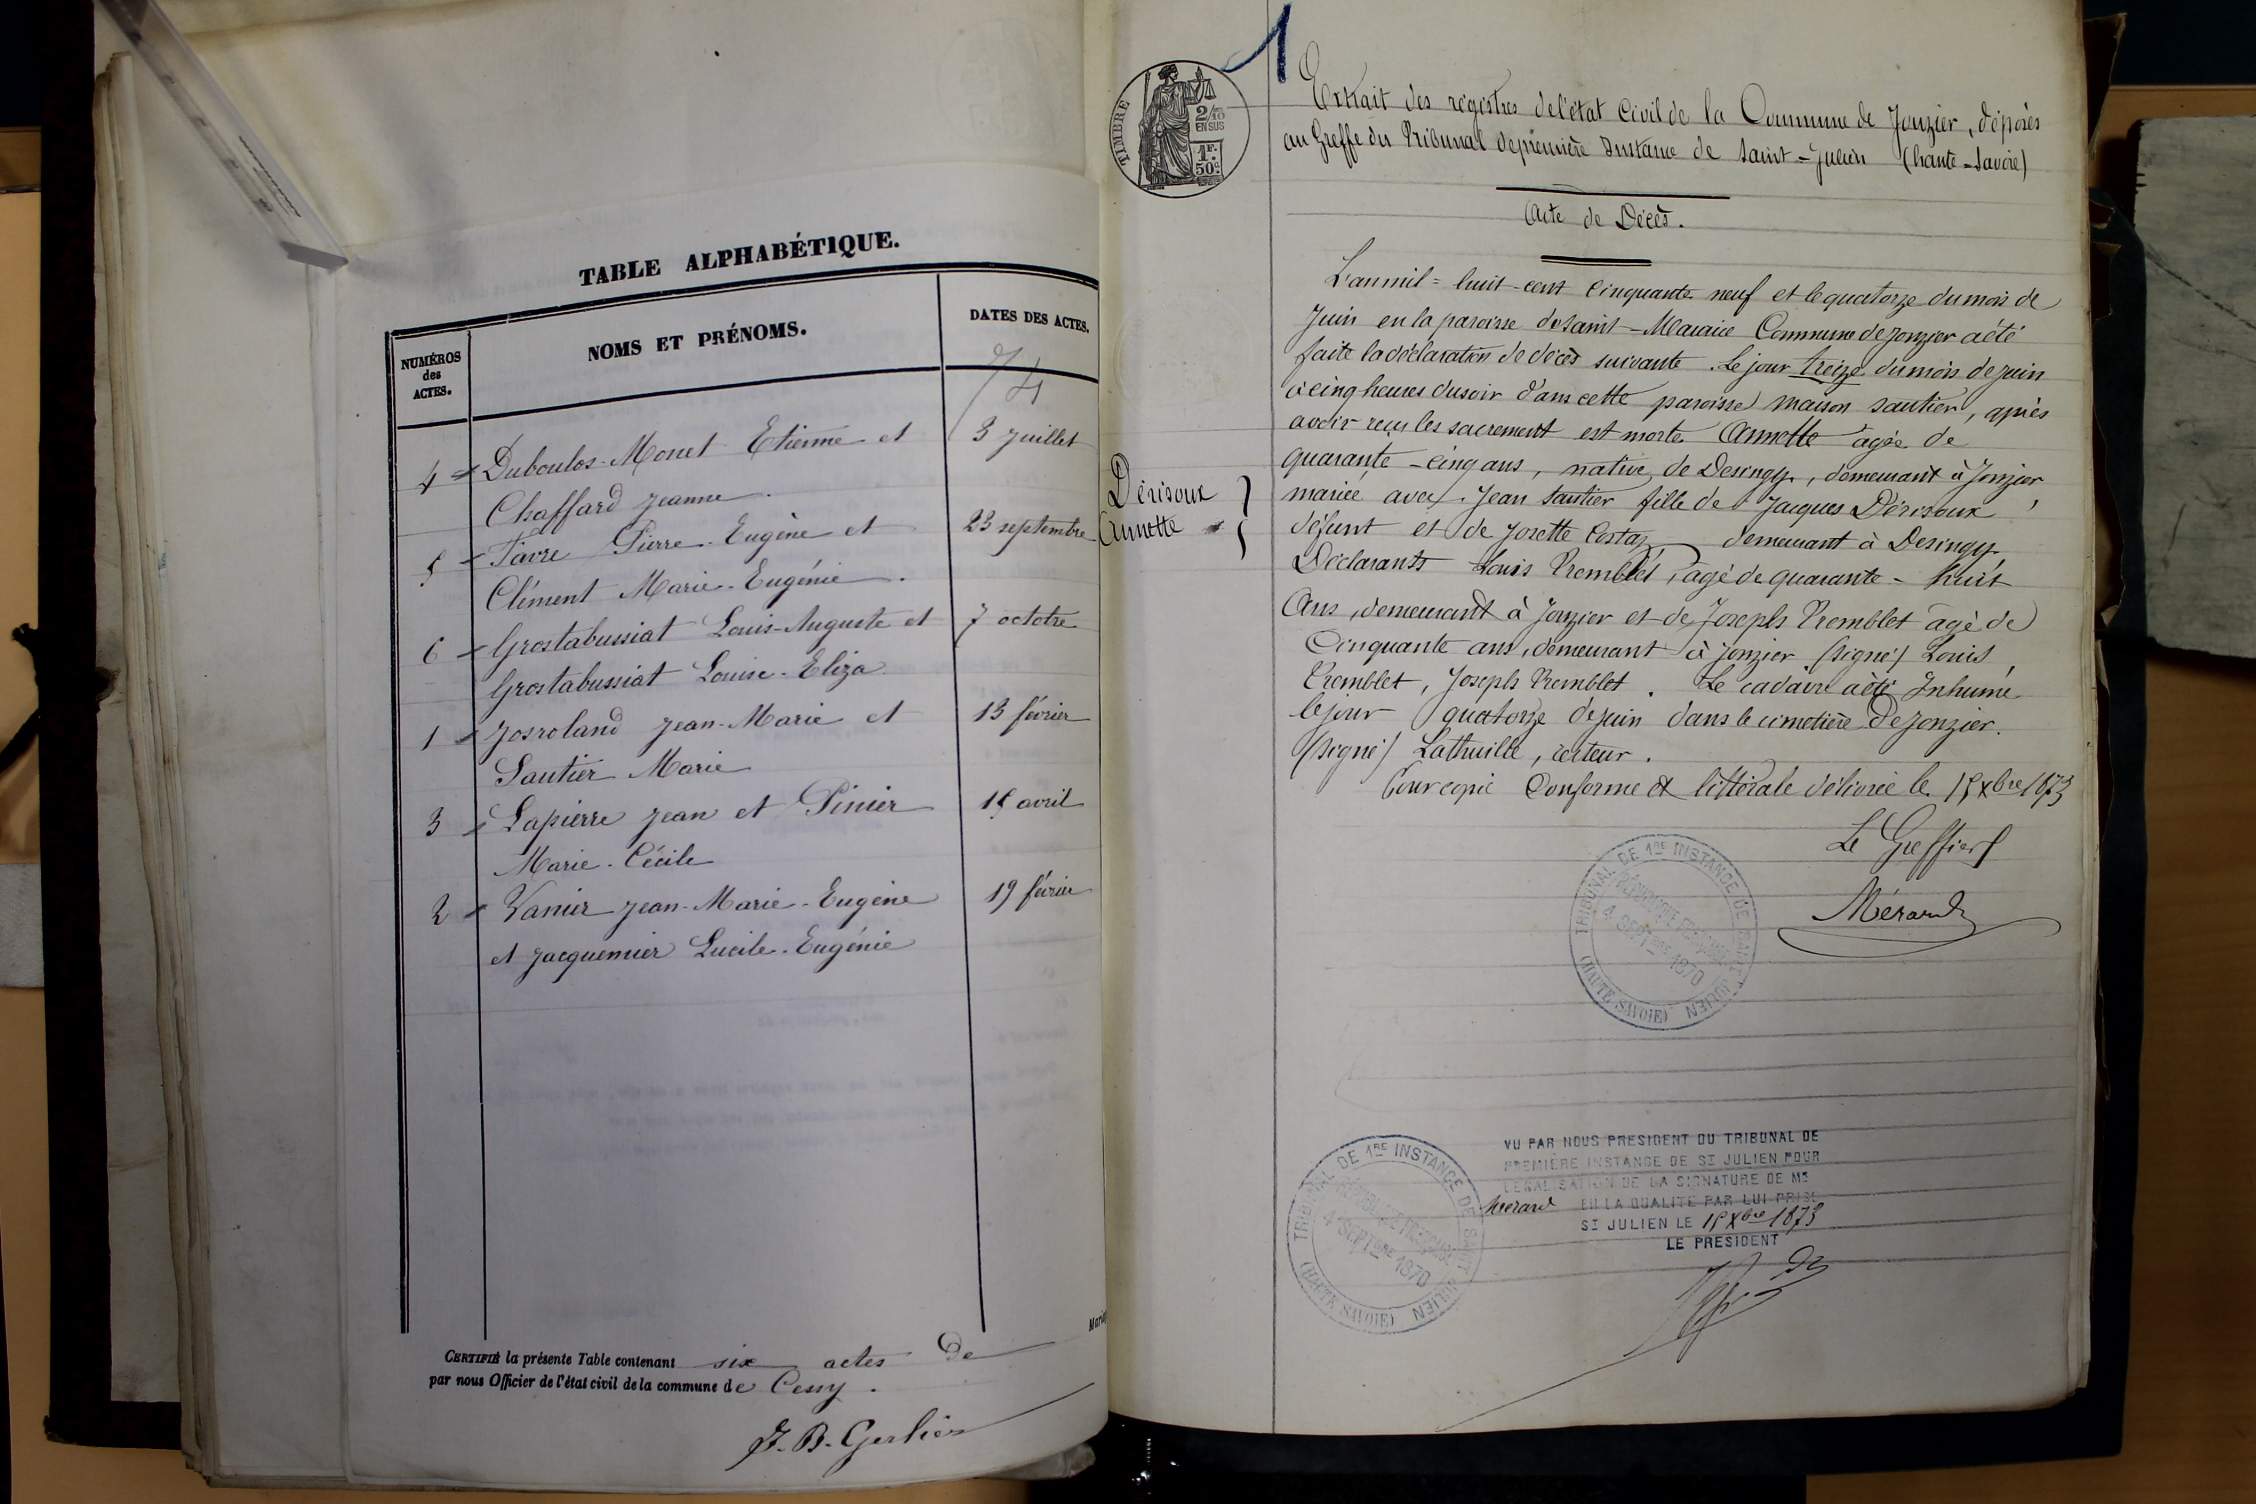 TABLE ALPHABÉTIQUE.
NUMÉROS des ACTES.
NOMS ET PRÉNOMS.
DATES DES ACTES.
74
4 Duboulos-Monet Etienne et 3 Juillet
Chaffard Jeanne.
5 Favre Pierre-Eugène et 23 septembre
Clément Marie-Eugénie.
6 Grostabussiat Louis-Auguste et 7 octobre
Grostabussiat Louise-Eliza
1 Josroland Jean-Marie et 13 février
Sautier Marie
3 Lapierre Jean et Pinier 15 avril
Marie-Cécile
2 Vanier Jean-Marie-Eugène 19 février
et Jacquemier Lucile-Eugénie
CERTIFIÉ la présente Table contenant six actes de
par nous Officier de l'état civil de la commune de Cessy.
J. B. Gerlier
1
TIMBRE
2/10
EN SUS
1 F.
50 c.
Extrait des régistres de l'état Civil de la Commune de Jonzier, déposés
au Greffe du Tribunal de première Instance de Saint-Julien (haute-Savoie)
Acte de Décès.
L'an mil-huit-cent cinquante neuf et le quatorze du mois de
Juin en la paroisse de Saint-Maurice Commune de Jonzier a été
faite la déclaration de décès suivante. Le jour treize du mois de juin
à cinq heures du soir dans cette paroisse maison sautier, après
avoir reçu les sacrement est morte Annette agée de
quarante-cinq ans, native de Desingy, demeurant à Jonzier
mariée avec Jean Sautier fille de Jacques Dérisoux,
défunt et de Josette Costaz demeurant à Desingy.
Dérisoux
Annette
Déclarants Louis Tremblet, agé de quarante-huit
Ans, demeurant à Jonzier et de Joseph Tremblet agé de
Cinquante ans, demeurant à Jonzier (signé) Louis
Tremblet, Joseph Tremblet. Le cadavre a été Inhumé
le jour quatorze de juin dans le cimetière de Jonzier.
(signé) Lathuille, recteur.
Pour copie Conforme & littérale délivrée le 15 Xbre 1873
Le Greffier
Mérand
TRIBUNAL DE 1RE INSTANCE DE SAINT JULIEN
RÉPUBLIQUE FRANÇAISE
4 SEPTBRE 1870
(HAUTE SAVOIE)
VU PAR NOUS PRESIDENT DU TRIBUNAL DE
PREMIÈRE INSTANCE DE ST JULIEN POUR
LEGALISATION DE LA SIGNATURE DE MR
Mérand EN LA QUALITE PAR LUI PRISE
ST JULIEN LE 15 Xbre 1873
LE PRESIDENT
TRIBUNAL DE 1RE INSTANCE DE SAINT JULIEN
RÉPUBLIQUE FRANÇAISE
4 SEPTBRE 1870
(HAUTE SAVOIE)